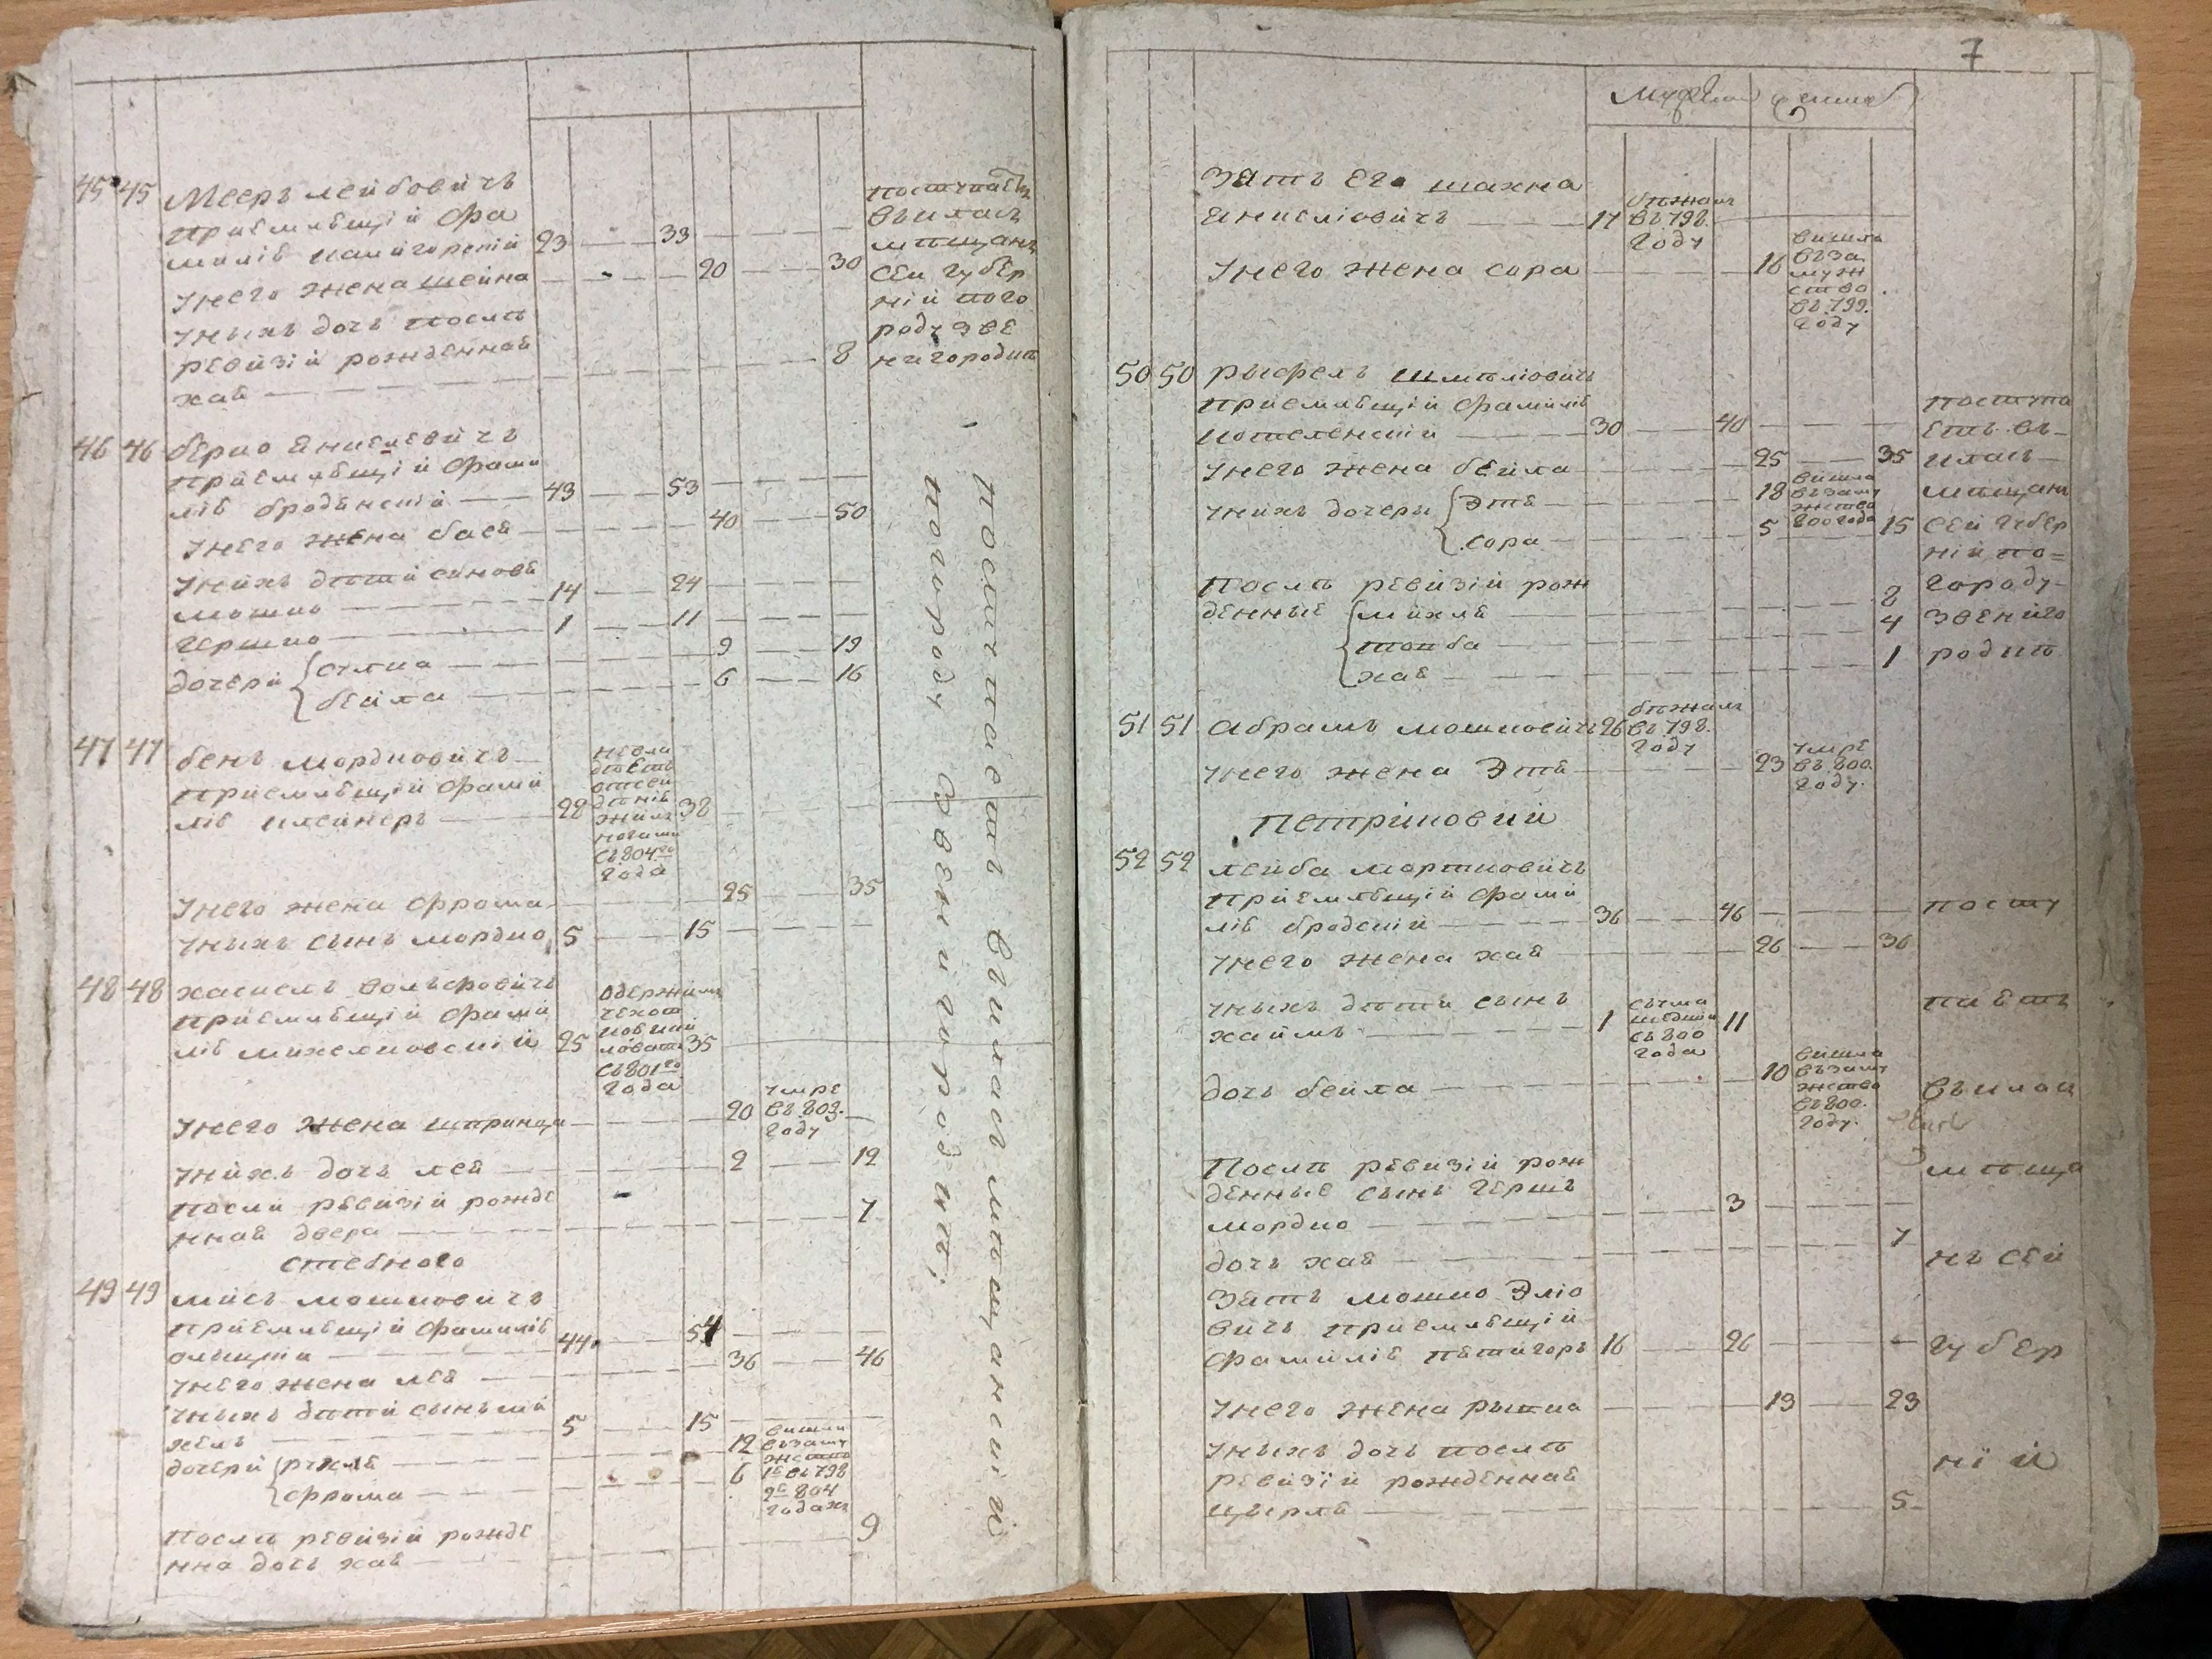 45 45 Мееръ лейбовичъ
приемлющій фа
милію каливорскій 23 33
унего жена шейна 20 30
уныхъ дочь послѣ
ревизій рожденная
хая 8
поступаетъ
въ класъ
мѣщанъ
сей губер
ній пого
роду Зве
нигородкѣ
46 46 берко Анкелевичъ
приемлющій фами
лію бродянскій 43 53
унего жена бася 40 50
унихъ дѣти синовя
мошко 14 24
гершко 1 11
дочери сулка 9 19
бейла 6 16
47 47 бенъ мордковичъ
приемлющій фами
лію клейнеръ 28 38
ногами
съ 804го
года
унего жена фрома 25 35
уныхъ сынъ мордко 5 15
48 48 хаскель вольфовичъ
приемлющій фами
лію михелковскій 25 35
одержимъ
съ 801го
года
унего жена шпринца 20
умре
въ 803.
году
унихъ дочь лея 2 12
посли ревизій рожде
нная двера 7
стебного
49 49 мись мошковичъ
приемлющій фамилію
ольшка 44 54
унего жена лея 36 46
уныхъ дѣти сынъ ми
хель 5 15
дочери рухля 12
фрома 6
вишли
въ заму
жство
1я въ 798
2я 804
годахъ
послѣ ревизій рожде
нна дочь хая 9
поступаетъ въ класъ мѣщанскій
погороду Звенигородкѣ;
7
Зять его шахна
Анкеліовичъ 17
бѣжалъ
въ 798.
году
унего жена сора 16
вишла
въ за
муж
ство
въ 799.
году
50 50 рысфель шмпліовичъ
приемлющій фамилію
котеленскій 30 40
унего жена бейла 25 35
унихъ дочери Эстя 18
вишла
въ заму
жство
800 года
сора 5 15
послѣ ревизій рож
денные михля 8
товба 4
хая 1
поступа
етъ въ
класъ
мѣщан
сей губер
ній по=
городу
Звениго
родкѣ
51 51 Абрамъ мошковичъ 26
бѣжалъ
въ 798.
году
унего жена Этя 23
умре
въ 800.
году.
Петриковки
52 52 лейба мортковичъ
приемлющій фами
лію бродскій 36 46
унего жена хая 26 36
уныхъ дѣти сынъ
хаимъ 1 11
съума
шедши
съ 800
года
дочь бейла 10
вишла
въ заму
жство
въ 800.
году.
Послѣ ревизій рож
денные сынъ гершъ
мордко 3
дочь хая 7
Зять мошко Эліо
вичъ приемлющій
фамилію пятигоръ 16 26
унего жена рывка 13 23
уныхъ дочь послѣ
ревизій рожденная
цверля 5
посту
паетъ
въ клас
мѣща
нъ сей
губер
ній